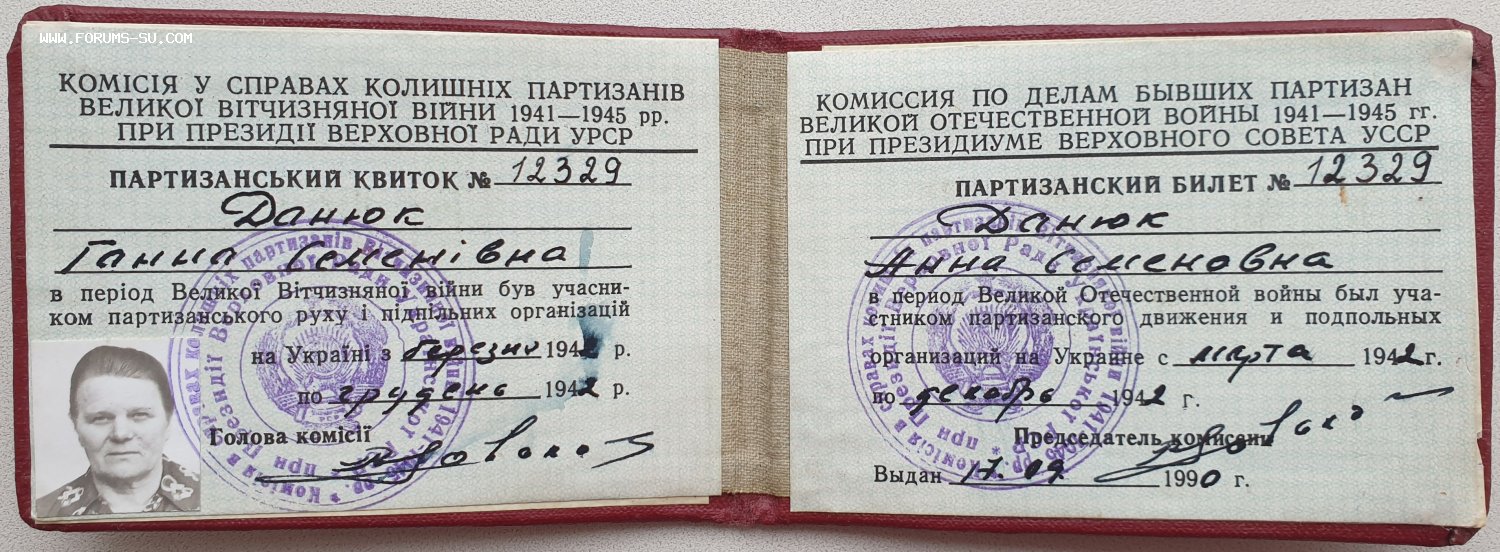 www.forums-su.com
КОМІСІЯ У СПРАВАХ КОЛИШНІХ ПАРТИЗАНІВ
ВЕЛИКОЇ ВІТЧИЗНЯНОЇ ВІЙНИ 1941—1945 рр.
ПРИ ПРЕЗИДІЇ ВЕРХОВНОЇ РАДИ УРСР
ПАРТИЗАНСЬКИЙ КВИТОК № 12329
Данюк
Ганна Семенівна
в період Великої Вітчизняної війни був учасни-
ком партизанського руху і підпільних організацій
на Україні з березня 1942 р.
по грудень 1942 р.
Голова комісії
КОМИССИЯ ПО ДЕЛАМ БЫВШИХ ПАРТИЗАН
ВЕЛИКОЙ ОТЕЧЕСТВЕННОЙ ВОЙНЫ 1941—1945 гг.
ПРИ ПРЕЗИДИУМЕ ВЕРХОВНОГО СОВЕТА УССР
ПАРТИЗАНСКИЙ БИЛЕТ № 12329
Данюк
Анна Семеновна
в период Великой Отечественной войны был уча-
стником партизанского движения и подпольных
организаций на Украине с марта 1942 г.
по декабрь 1942 г.
Председатель комиссии
Выдан 17.09 1990 г.